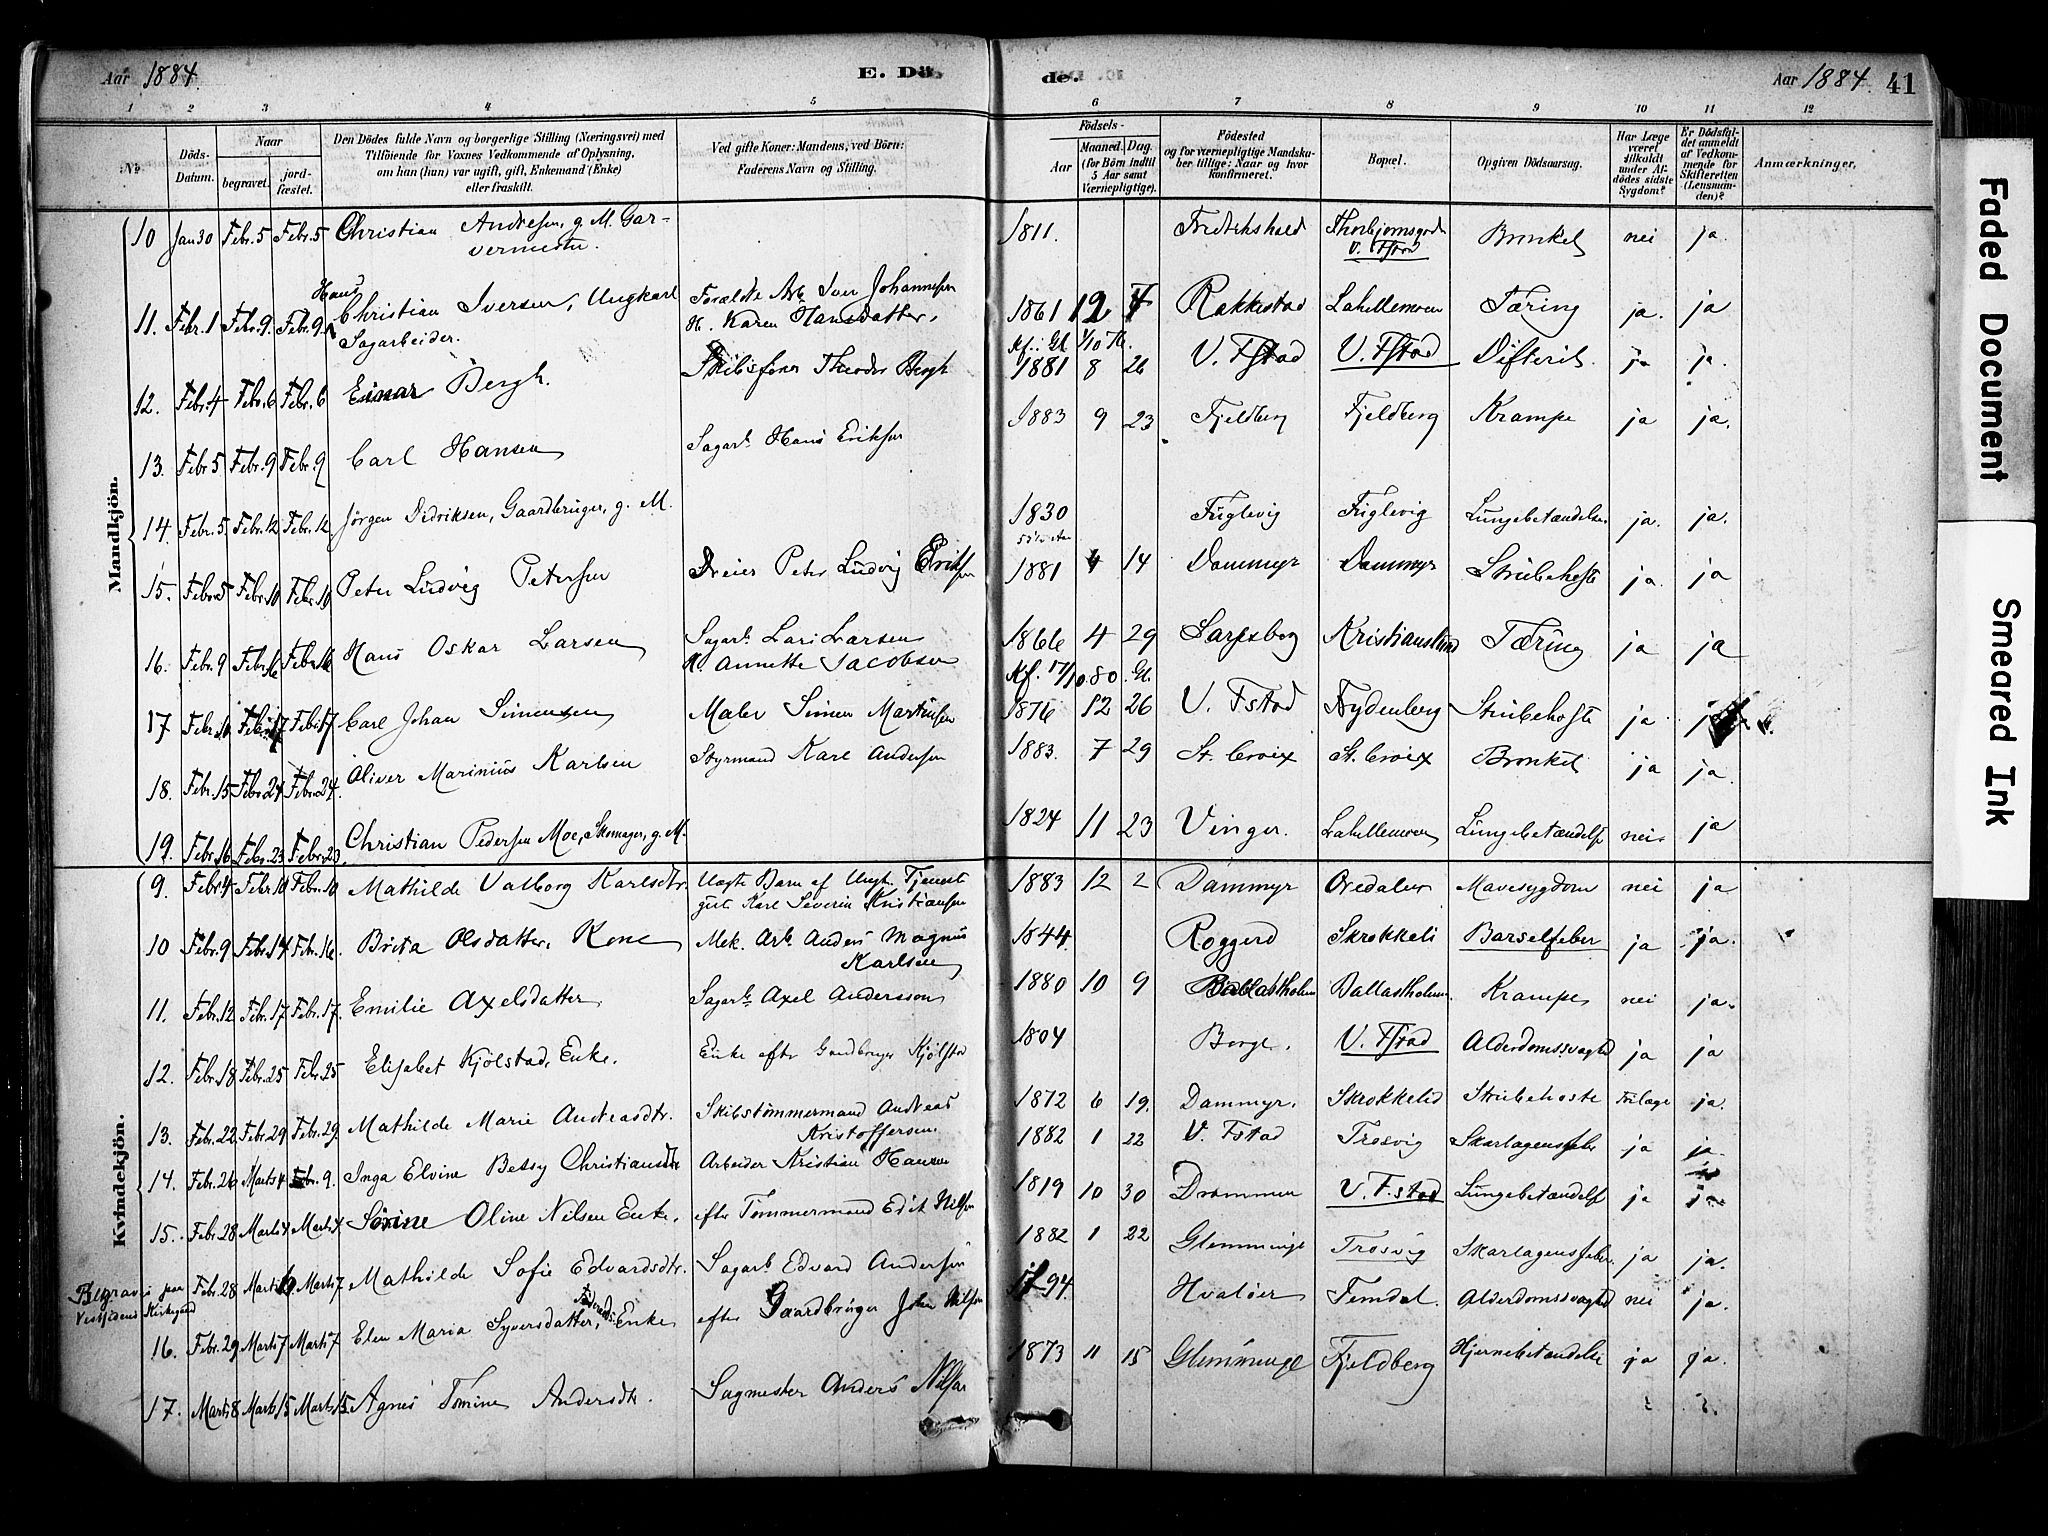 Aar 1884. E. Dö- de. Aar 1884. 41
1 2 3 4 5 6 7 8 9 10 11 12
No. Döds-Datum. Naar begravet. jord-fæstet. Den Dödes fulde Navn og borgerlige Stilling (Næringsvei) med Tilföiende for Voxnes Vedkommende af Oplysning, om han (hun) var ugift, gift, Enkemand (Enke) eller fraskilt. Ved gifte Koner: Mandens, ved Börn: Faderens Navn og Stilling. Födsels- Aar Maaned. Dag. (for Börn indtil 5 Aar samt Værnepligtige). Födested og for værnepligtige Mandskaber tillige: Naar og hvor konfirmeret. Bopæl. Opgiven Dödsaarsag. Har Læge været tilkaldt under Afdödes sidste Sygdom? Er Dödsfaldet anmeldt af Vedkommende for Skifteretten (Lensmanden)? Anmærkninger.
Mandkjön.
10 Jan 30 Febr. 5 Febr. 5 Christian Andresen, g. M. Garvermester. 1811. Fredrikshald Thorbjørnsgrd V. Fstad Bronket nei ja.
11. Febr. 1 Febr. 9. Febr. 9. Hans Christian Iversen, Ungkarl Sagarbeider. Forældre Arb. Iver Johannesen H. Karen Hansdatter. 1861 12 4 Rakkestad Lahellemoen Tæring ja. ja
12. Febr. 4 Febr. 6 Febr. 6 Einar Bergh. Skibsfører Theodor Bergh 1881 8 26 V. Fstad V. Fstad Difterit ja ja.
13. Febr 5 Febr. 9 Febr. 9 Carl Hansen Sagarb. Hans Eriksen 1883 9 23 Fjeldberg Fjeldberg Krampe ja ja.
14. Febr. 5. Febr. 12 Febr. 12. Jørgen Didriksen, Gaardbruger, g. M. 1830 Fuglevig Fuglevig Lungebetændelse. ja. ja.
15. Febr. 5 Febr. 10 Febr. 10 Peter Ludvig Petersen Dreier Peter Ludvig Eriksen 1881 4 14 Dammyr Dammyr Strubehoste ja. ja
16. Febr. 9 Febr. 16 Febr. 16 Hans Oskar Larsen Sagarb. Lars Larsen H. Annette Jacobsen 1866 4 29 Sarpsborg Kristianslund Tæring ja ja
Kf. 17/10 80. Gl.
17 Febr. 10 Febr. 17 Febr. 17 Carl Johan Simensen Maler Simen Martinsen 1876 12 26 V. Fstad Nydenberg Strubehoste ja
18. Febr. 15 Febr. 24 Febr. 24. Oliver Marinius Karlsen Styrmand Karl Andersen 1883. 7 29 St. Croix St. Croix Bronket ja ja.
19. Febr. 16 Febr. 23 Febr. 23. Christian Pedersen Moe, Skomager, g. M. 1824 11 23 Vinger. Lahellemoen Lungebetændelse nei. ja
Kvindekjön.
9. Febr 4 Febr. 10 Febr. 10 Mathilde Valborg Karlsdtr. Uægte Barn af Ungk. Tjenestegut Karl Severin Kristiansen 1883 12 2 Dammyr Oredalen Mavesygdom nei ja
10 Febr. 9 Febr. 14 Febr. 16. Brita Olsdatter, Kone Mek. Arb. Anders Magnus Karlsen 1844. Roggerd Skrokkeli Barselfeber ja ja.
11. Febr. 12 Febr. 17 Febr. 17. Emilie Axelsdatter Sagarb. Axel Andersson 1880 10 9 Ballastholm Ballastholm. Krampe nei ja.
12. Febr. 18 Febr. 25 Febr. 25 Elisabet Kjölstad, Enke. Enke efter Gaardbruger Kjölstad 1804 Borge. V. Fstad Alderdomssvaghed ja ja
13. Febr. 22 Febr. 29 Febr. 29. Mathilde Marie Andreasdtr. Skibstömmermand Andreas Kristoffersen. 1872 6 19. Dammyr. Skrokkelid Strubehoste Frilæge ja.
14. Febr. 26 Marts 4 Febr. 9. Inga Elvine Betsy Christiansdtr Arbeider Kristian Hansen 1882 1 22 V. Fstad Trosvig Skarlagensfeber ja ja.
15. Febr. 28 Marts 4 Marts 4. Sørine Oline Nilsen Enke. efter Tømmermand Nilsen 1819 10 30 Drammen V. Fstad Lungebetændelse ja ja
Febr. 28 Marts Marts 7 Mathilde Sofie Edvardsdtr. Sagarb. Edvard Andersen 1882 1 22 Glemminge Trosvig Skarlagensfeber. ja ja.
Begravet paa Vestsidens Kirkegaard
16. Febr. 29 Marts 7 Marts 7 Elen Maria Syversdatter, Enke efter Gaardbruger John Nilsen 1794. Hvaløer Femdal. Alderdomssvaghed nei ja.
17. Marts 8 Marts 15 Marts 15. Agnes Tomine Andersdtr. Sagmester Anders Nilsen 1873 11 15 Glemminge Fjeldberg Hjernebetændelse ja ja.
Faded Document
Smeared Ink